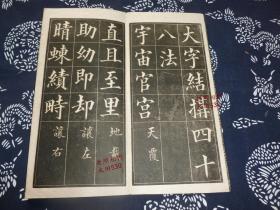 大字結撰四十
八法
宇宙官宮 天覆
直且至里 地載
助幼即却 讓左
晴蝀績時 讓右